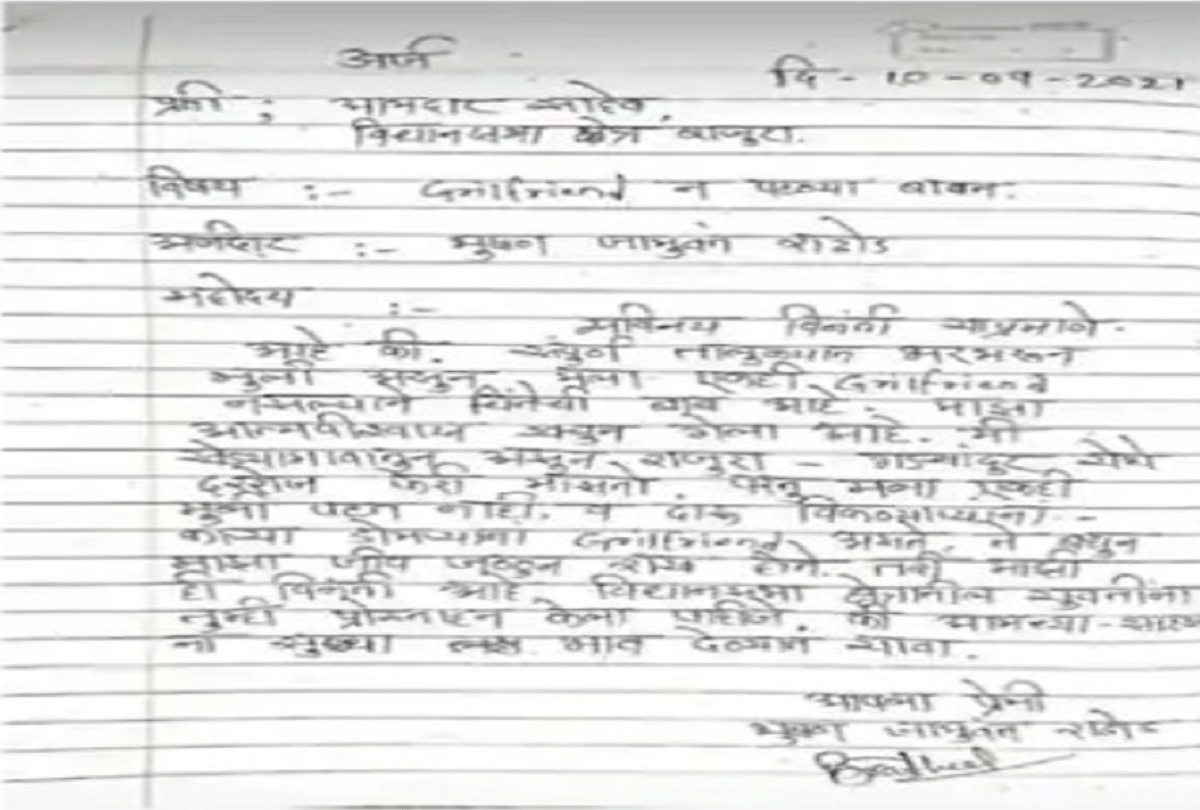 अर्ज
दि - 10-09-2021
प्रती : आमदार साहेब,
विधानसभा क्षेत्र राजुरा.
विषय :- Grilfriend न पटल्या बाबत.
अर्जदार :- भुषण जामुवंत राठोड
महोदय :-
सविनय विनंती याप्रमाणे.
आहे की. संपुर्ण तालुक्यात भरभरून
मुली असुन मला एकही Grilfriend
नसल्याने चिंतेची बाब आहे. माझा
आत्मवीश्वास खचुन गेला आहे. मी
खेड्यागावातुन असुन राजुरा - गडचांदुर येथे
दररोज फेरी मारतो. परंतु मला एकही
मुली पटत नाही. व दारू विकणाऱ्याला -
काल्या डोमळ्याला Grilfriend असते. ते बघुन
माझा जीव जळुन राख होते. तरी माझी
ही विनंती आहे. विधानसभा क्षेत्रातील युवतींना
तुम्ही प्रोत्साहन केला पाहीजे. की आमच्या-सारख्या
ना सुध्धा भाव देण्यात यावा.
आपला प्रेमी
भुषण जामुवंत राठोड